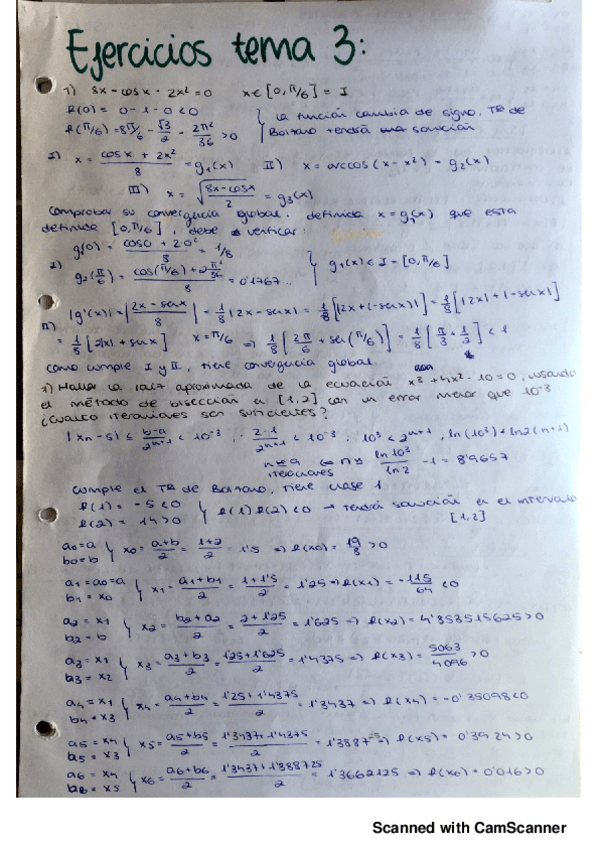 Ejercicios tema 3:
1) 8x - cosx - 2x² = 0   x ∈ [0, π/6] = I
f(0) = 0 - 1 - 0 < 0
f(π/6) = 8π/6 - √3/2 - 2π²/36 > 0
la función cambia de signo, Tª de
Bolzano tendrá una solución
I) x = (cosx + 2x²)/8 = g₁(x)   II) x = arccos(x - x²) - g₂(x)
III) x = √((8x - cosx)/2) = g₃(x)
Comprobar su convergencia global. definida x = g₁(x) que esta
definida [0, π/6], debe verificar:
g(0) = (cos0 + 2·0²)/8 = 1/8
I) g₂(π/6) = (cos(π/6) + 2π²/36)/8 = 0'1767..   g₁(x) ∈ I = [0, π/6]
II) |g'(x)| = |(2x - senx)/8| = 1/8 |2x - senx| = 1/8 [|2x + (-senx)|] = 1/8 [|2x| + |-senx|]
= 1/8 [2|x| + senx]   x = π/6 ⇒ 1/8 [2π/6 + sen(π/6)] = 1/8 [π/3 + 1/2] < 1
como cumple I y II, tiene convergencia global
Hallar la raíz aproximada de la ecuación x³ + 4x² - 10 = 0, usando
el método de bisección en [1,2] con un error menor que 10⁻³
¿Cuántas iteraciones son suficientes?
|xn - s| ≤ (b-a)/2ⁿ⁺¹ < 10⁻³ ; (2-1)/2ⁿ⁺¹ < 10⁻³ ; 10³ < 2ⁿ⁺¹, ln(10³) < ln2(n+1)
n ≥ 9 iteraciones ⇐ n ≥ ln10³/ln2 - 1 = 8'9657
Cumple el Tª de Bolzano, tiene clase 1
f(1) = -5 < 0
f(2) = 14 > 0   f(1) f(2) < 0 → tendrá solución en el intervalo
[1,2]
a0 = a
b0 = b   x0 = (a+b)/2 = (1+2)/2 = 1'5 ⇒ f(x0) = 19/8 > 0
a1 = a0 = a
b1 = x0   x1 = (a1+b1)/2 = (1+1'5)/2 = 1'25 ⇒ f(x1) = -115/64 < 0
a2 = x1
b2 = b   x2 = (b2+a2)/2 = (2+1'25)/2 = 1'625 ⇒ f(x2) = 4'853515625 > 0
a3 = x1
b3 = x2   x3 = (a3+b3)/2 = (1'25+1'625)/2 = 1'4375 ⇒ f(x3) = 5063/4096 > 0
a4 = x1
b4 = x3   x4 = (a4+b4)/2 = (1'25+1'4375)/2 = 1'3437 ⇒ f(x4) = -0'35098 < 0
a5 = x4
a5 = x3   x5 = (a5+b5)/2 = (1'3437+1'4375)/2 = 1'3887 ⇒ f(x5) = 0'3924 > 0
a6 = x4
b6 = x5   x6 = (a6+b6)/2 = (1'3437+1'388725)/2 = 1'3662125 ⇒ f(x6) = 0'016 > 0
Scanned with CamScanner